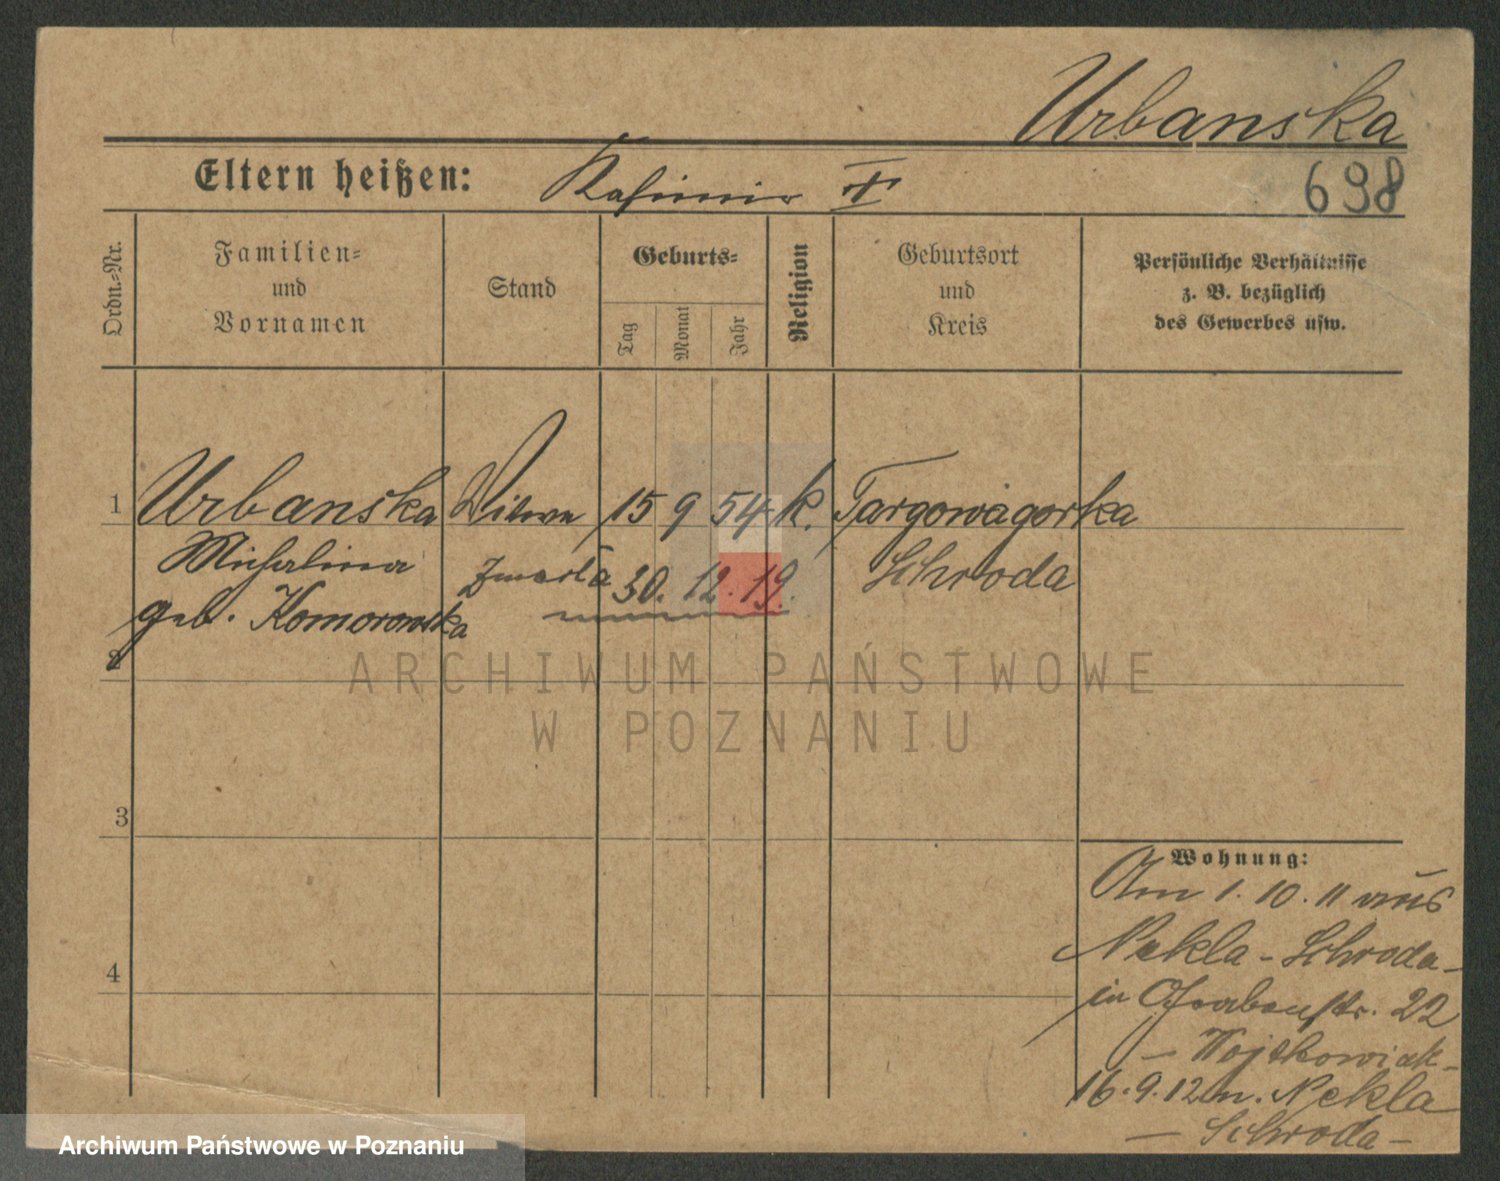 Urbanska
Eltern heißen: Kasimir †
698
Ordn.-Nr.
Familien-
und
Vornamen
Stand
Geburts-
Tag
Monat
Jahr
Religion
Geburtsort
und
Kreis
Persönliche Verhältnisse
z. B. bezüglich
des Gewerbes usw.
1 Urbanska Witwe 15 9 54 k. Targowagorka
Michalina zmarła 30. 12. 19. Schroda
geb. Komorowska
2
ARCHIWUM PAŃSTWOWE
W POZNANIU
3
Wohnung:
Am 1. 10. 11 aus
Nekla - Schroda -
4
in Grabenstr. 22
- Wojtkowiak -
16. 9. 12 n. Nekla
- Schroda -
Archiwum Państwowe w Poznaniu